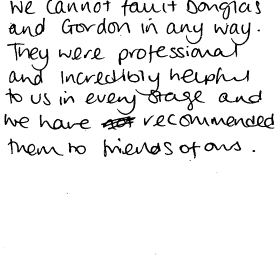 We cannot fault Donglas
and Gordon in any way.
They were professional
and incredibly helpful
to us in every stage and
we have recommended
them to friends of ours.